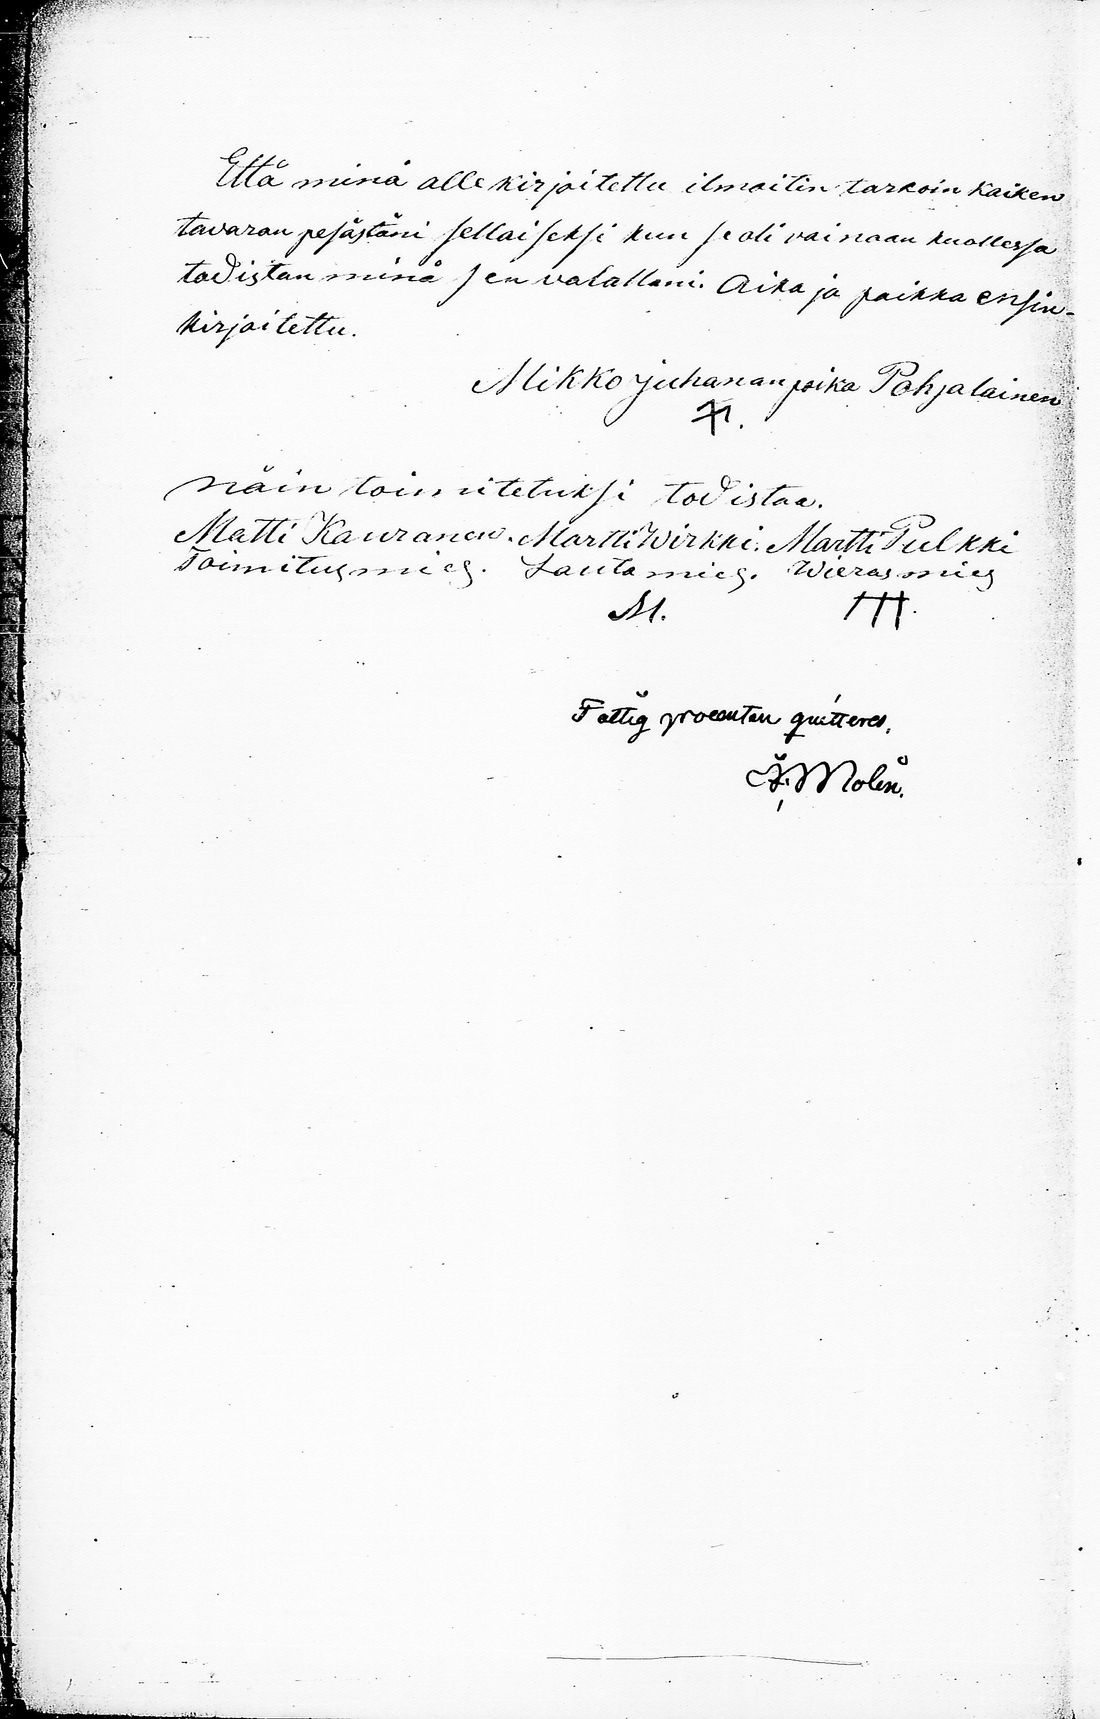 Että minä alle kirjoitettu ilmoitin tarkoin kaiken
tavaran pesästäni sellaiseksi kun se oli vainaan kuollessa
todistan minä sen valallani. Aika ja paikka ensin-
kirjoitettu.
Mikko Juhananpoika Pohjalainen
näin toimitetuksi todistaa.
Matti Kauranen. Martti Wirkki. Martti Pulkki
Toimitusmies. Lautamies. Wierasmies
M.
Fattig procenten quitteras,
Molin.